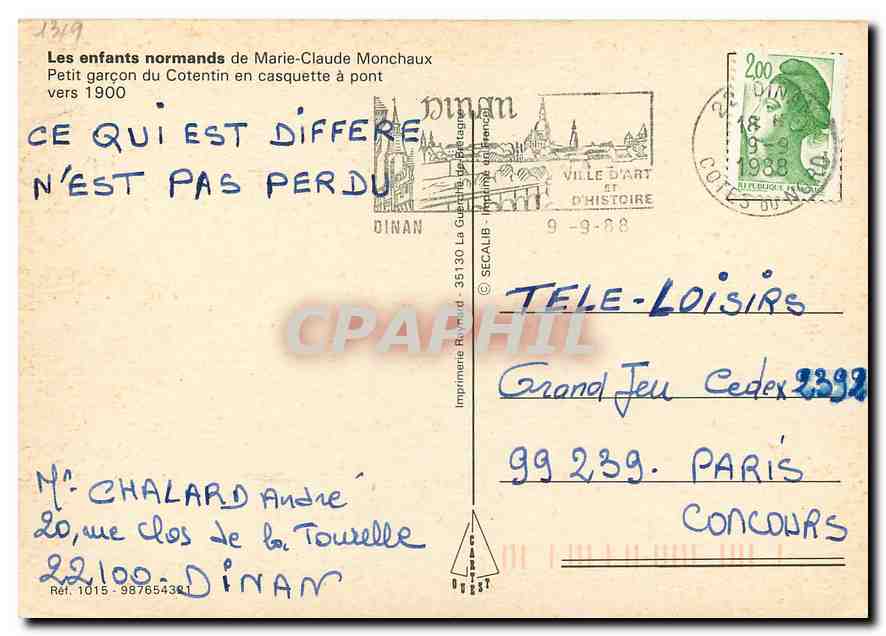 1319
Les enfants normands de Marie-Claude Monchaux
Petit garçon du Cotentin en casquette à pont
vers 1900
CE QUI EST DIFFERE
N'EST PAS PERDU
DINAN
VILLE D'ART
ET
D'HISTOIRE
DINAN
9 -9-88
22 DINAN
18 H
9-9
1988
COTES DU NORD
2,00
REPUBLIQUE
Imprimerie Raynard - 35130 La Guerche de Bretagne
© SECALIB - Imprimé en France
CPAPHIL
TELE-LOISIRS
Grand Jeu Cedex 2392
99 239. PARIS
CONCOURS
Mr CHALARD André
20, rue Clos de la Tourelle
22100 - DINAN
CARTES
OUEST
Réf. 1015 - 987654321